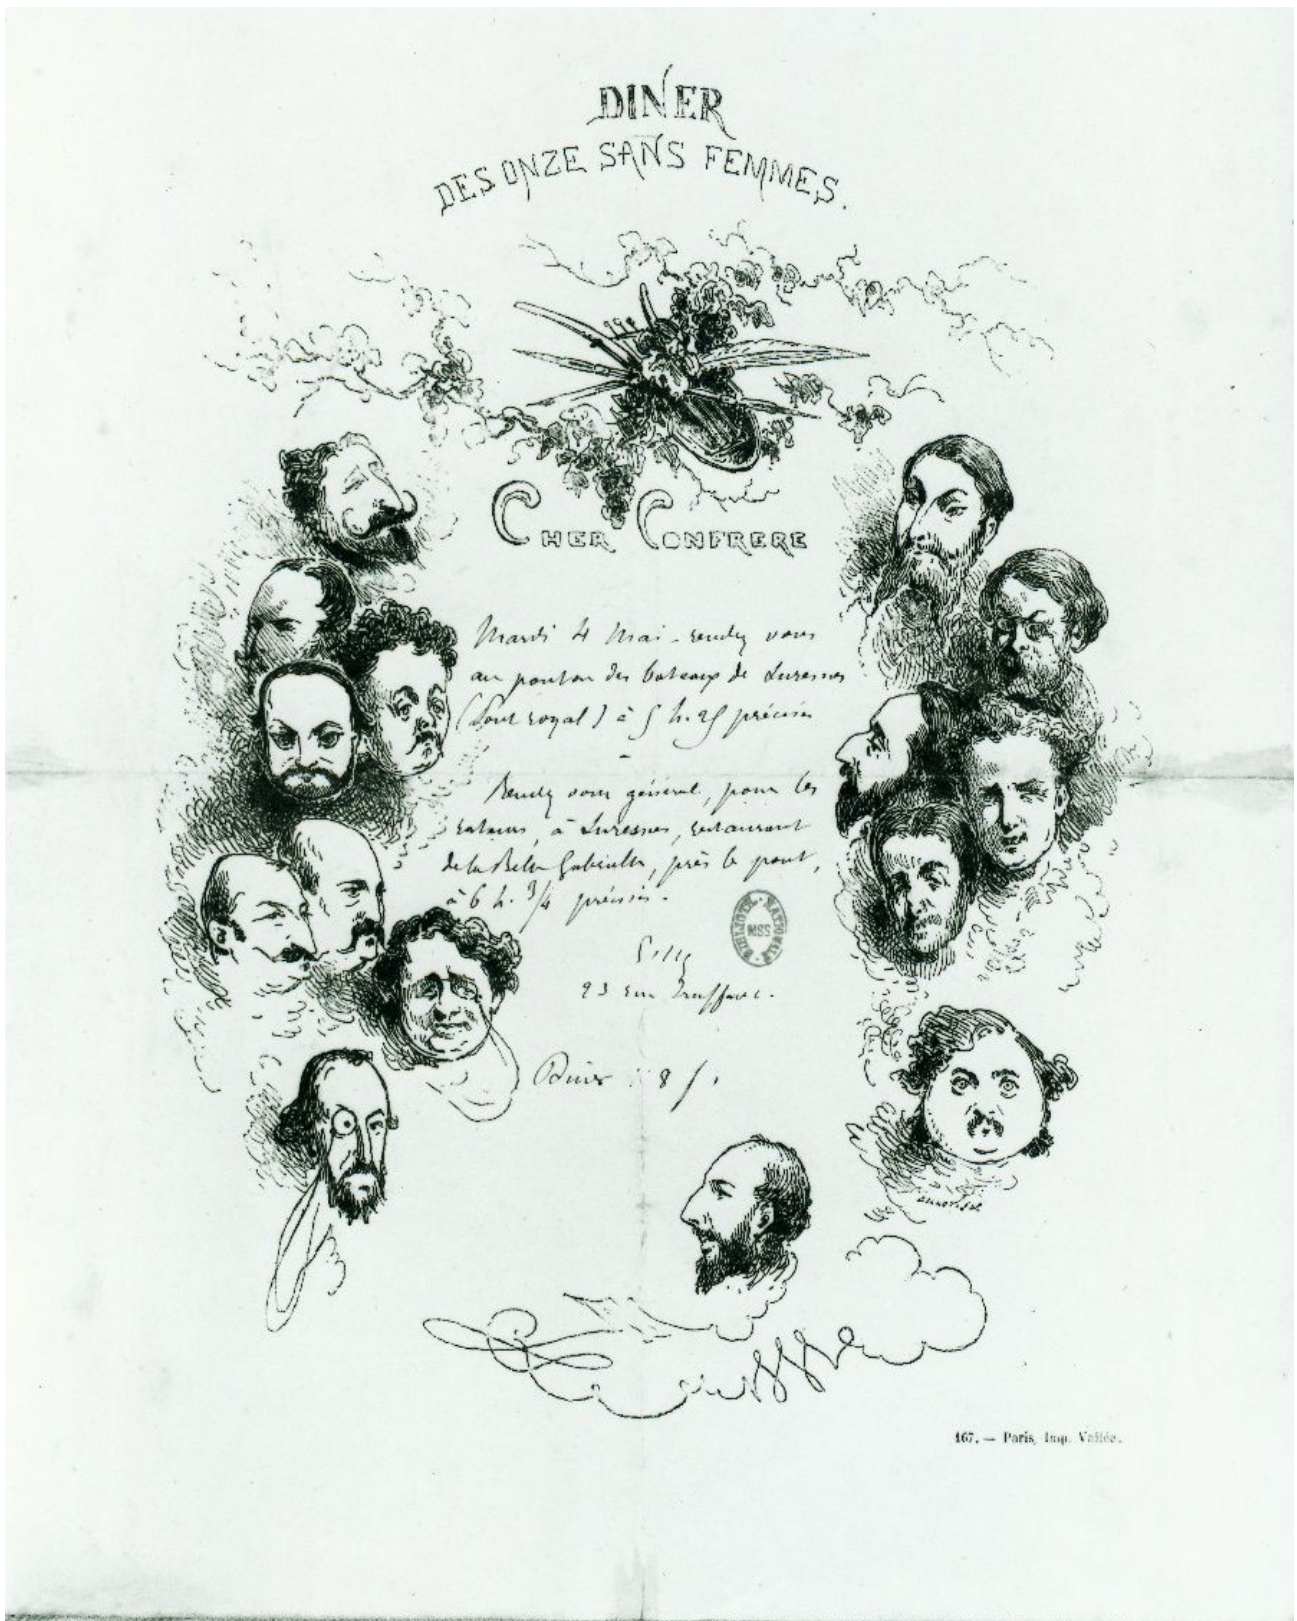 DINER
DES ONZE SANS FEMMES.
CHER CONFRERE
Mardi 4 Mai - rendez vous
au ponton des bateaux de Suresnes
(Pont royal) à 5 h. 25 précises
Rendez vous général, pour les
, à Suresnes, restaurant
de la Belle Gabrielle, près le pont,
à 6 h. 3/4 précises.
BIBLIOTH. NATIONALE
MSS
Gill
23 rue Truffaut.
Diner : 8 f.
167. — Paris, Imp. Vallée.